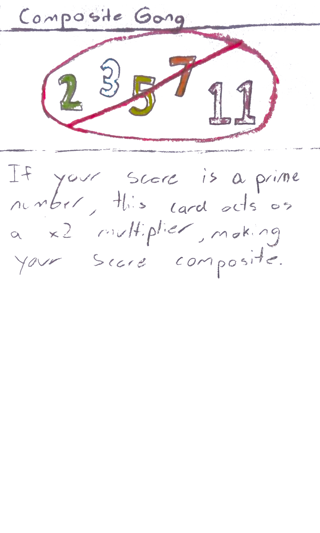 Composite Gong
2 3 5 7 11
If your score is a prime
number, this card acts as
a x2 multiplier, making
your score composite.